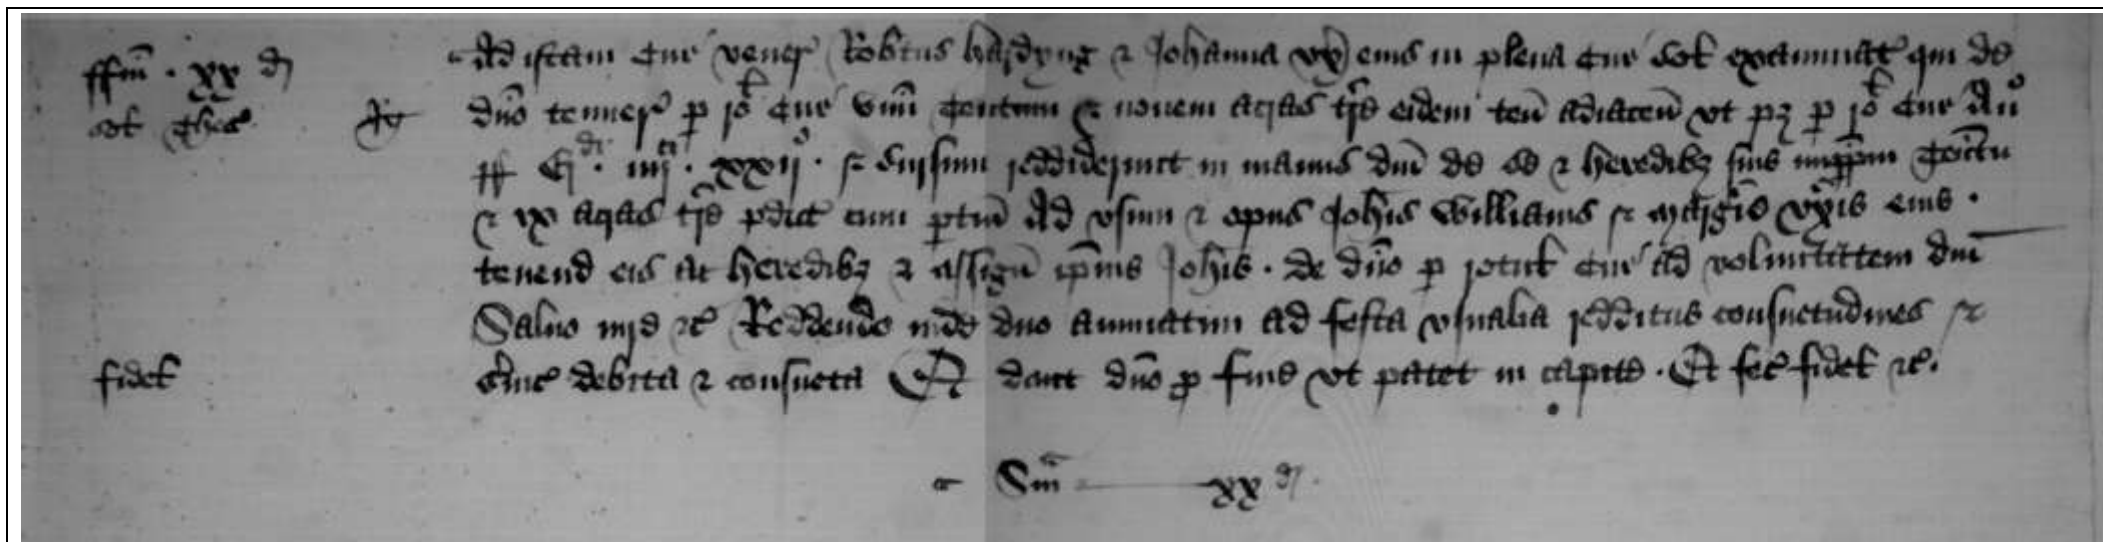 ffin . xx d
sol
Ad istam Cur vener Robtus hardyng & Johanna ux eius in plena Cur sol examinat qui de
dno tenuer p ro Cur unu tentum & novem acras tre eidem ten adiacen ut pz p ro Cur Ano
xxij . & sursum reddiderunt in manus dni de & heredibz suis tentu
& ix acras tre pdict cum ptin Ad usum & opus Johis Williams & Margie uxis eius .
tenend eis ac heredibz & assign ipius Johis . de dno p rotul Cur ad voluntatem dni
Salvo iure &c Reddendo inde dno annuatim ad festa usualia redditus consuetudines &
fidel
debita & consueta Et dant dno p fine ut patet in capite . Et fec fidel &c .
Sm xx d .